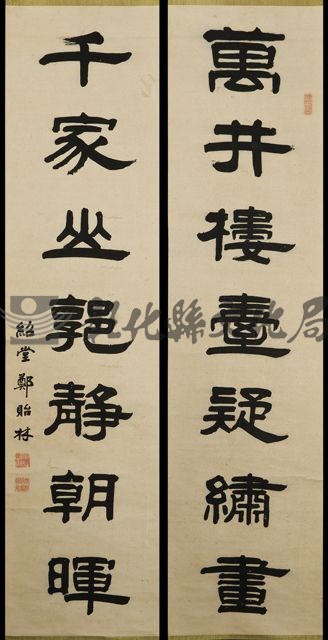 萬井樓臺疑繡畫
千家山郭靜朝暉
紹堂鄭貽林
彰化縣文化局